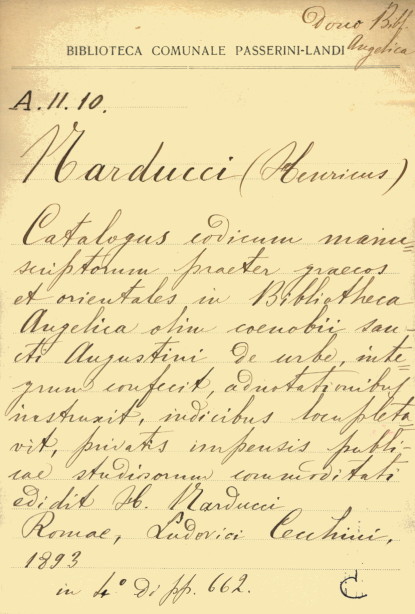 Dono Bibl.
Angelica
BIBLIOTECA COMUNALE PASSERINI-LANDI
A.II.10.
Narducci (Henricus)
Catalogus codicum manu=
scriptorum praeter graecos
et orientales in Bibliotheca
Angelica olim coenobii san-
cti Augustini de urbe, inte=
grum confecit, adnotationibus
instruxit, indicibus locupleta-
vit, privatis impensis publi-
cae studiorum commoditati
edidit H. Narducci
Romae, Ludovici Cecchini,
1893
in 4° di pp. 662.
C